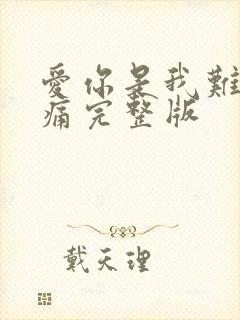 愛你是我難
痛完整版
戴天理